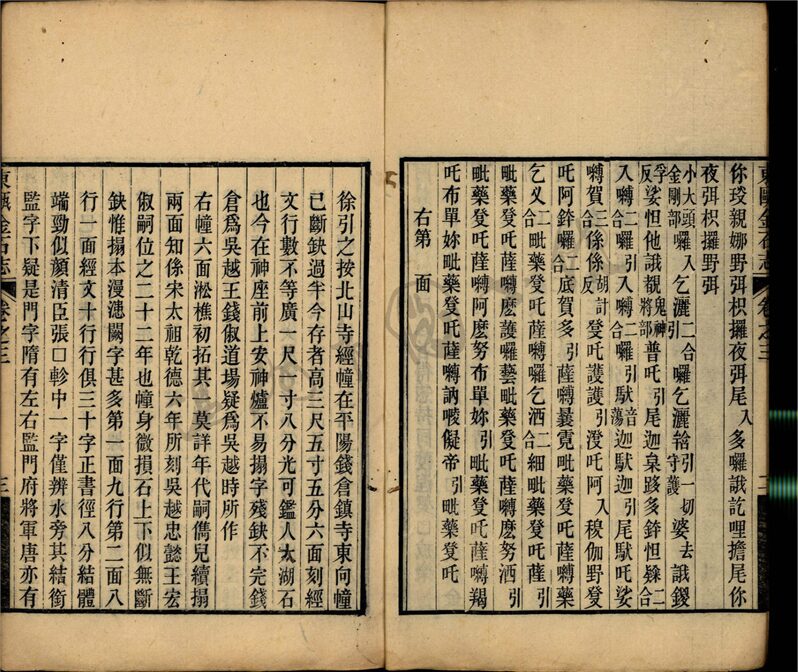 東甌金石志 卷之三 二
你琰親娜野弭枳攞夜弭尾入多囉誐訖哩擔尾你
夜弭枳攞野弭
小大頭囉入乞灑二合囉乞灑轄引一切婆去誐鍐
金剛部引守護
孚娑怛他誐覩鬼神普吒引尾迦皃路多鋅怛𩕳二
反將部合
入嚩二合囉引入嚩二合囉引馱音蕩迦馱迦引尾馱吒娑
嚩賀三合係係胡計反癹吒護護引澄吒阿入䅣伽野癹
吒阿鋅囉二合底賀多引薩嚩曩霓毗藥癹吒薩嚩藥
乞叉二合毗藥癹吒薩嚩囉乞洒二合細毗藥癹吒薩引
毗藥癹吒薩嚩麽護囉藝毗藥癹吒薩嚩麽努洒引
毗藥癹吒薩嚩阿麽努布單妳引毗藥癹吒薩嚩羯
吒布單妳毗藥癹吒薩嚩訥㘄儗帝引毗藥癹吒
右第 面
徐引之按北山寺經幢在平陽錢倉鎮寺東向幢
已斷缺過半今存者高三尺五寸五分六面刻經
文行數不等廣一尺 寸八分光可鑑人太湖石
也今在神座前上安神爐不易搨字殘缺不完錢
倉爲吳越王錢俶道場疑爲吳越時所作
右幢六面淞樵初拓其一莫詳年代嗣儁兒續搨
兩面知係宋太祖乾德六年所刻吳越忠懿王宏
俶嗣位之二十二年也幢身微損石上下似無斷
缺惟搨本漫漶闕字甚多第一面九行第二面八
行一面經文十行行俱三十字正書徑八分結體
端勁似顏清臣張口軫中一字僅辨水旁其結銜
監字下疑是門字隋有左右監門府將軍唐亦有
東甌金石志 卷之三 三